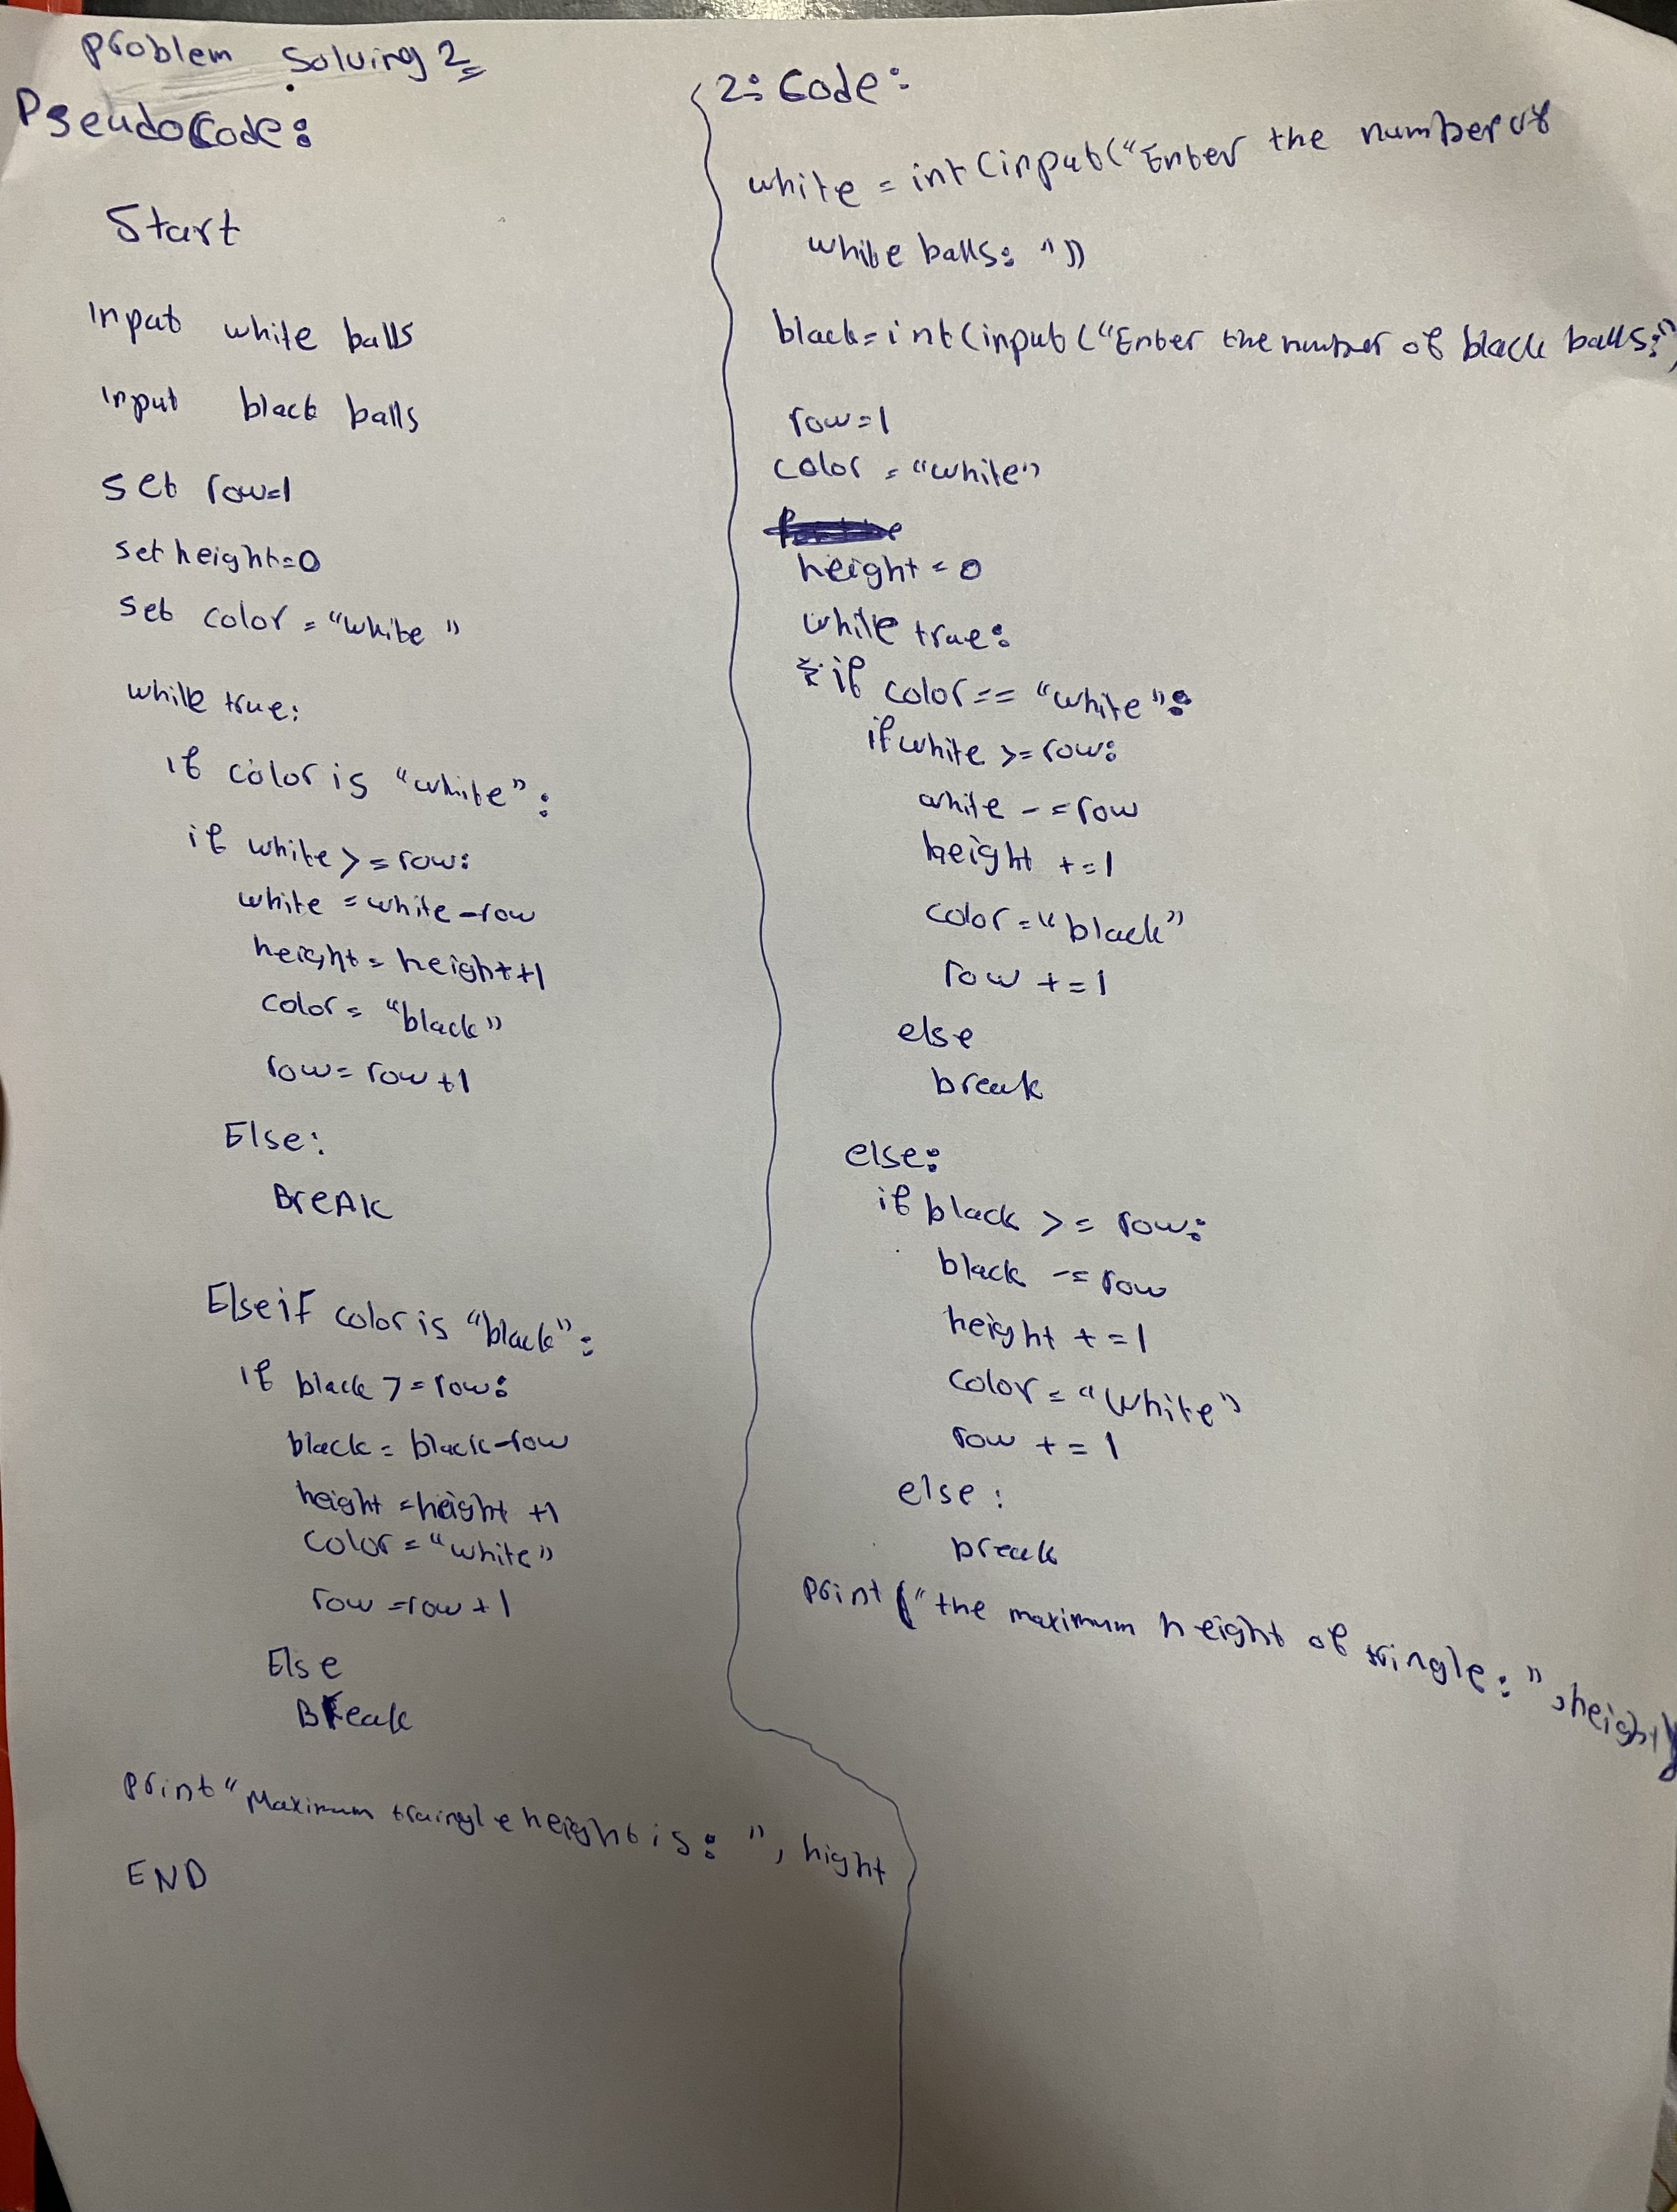 Problem Solving 2
Pseudocode:
Start
Input white balls
Input black balls
set row=1
set height=0
set color = "white"
while true:
if color is "white":
if white >= row:
white = white - row
height = height+1
color = "black"
row = row +1
Else:
BreAk
Else if color is "black":
if black >= row:
black = black-row
height = height +1
color = "white"
row = row + 1
Else
Break
print "Maximum traingle height is: ", hight
END
2: Code:
white = int(input("Enter the number of
white balls: "))
black = int(input("Enter the number of black balls:")
row=1
color = "white"
height = 0
while true:
if color == "white":
if white >= row:
white -= row
height += 1
color = "black"
row += 1
else
break
else:
if black >= row:
black -= row
height += 1
color = "white"
row += 1
else:
break
print("the maximum height of tringle: ", height)